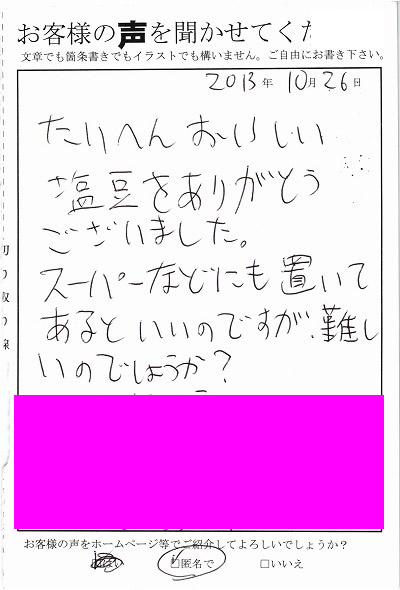 お客様の声を聞かせてくだ
文章でも箇条書きでもイラストでも構いません。ご自由にお書き下さい。
2013年 10月26日
たいへんおいしい
塩豆をありがとう
ございました。
スーパーなどにも置いて
あるといいのですが、難し
いのでしょうか?
切り取り線
お客様の声をホームページ等でご紹介してよろしいでしょうか?
□匿名で □いいえ